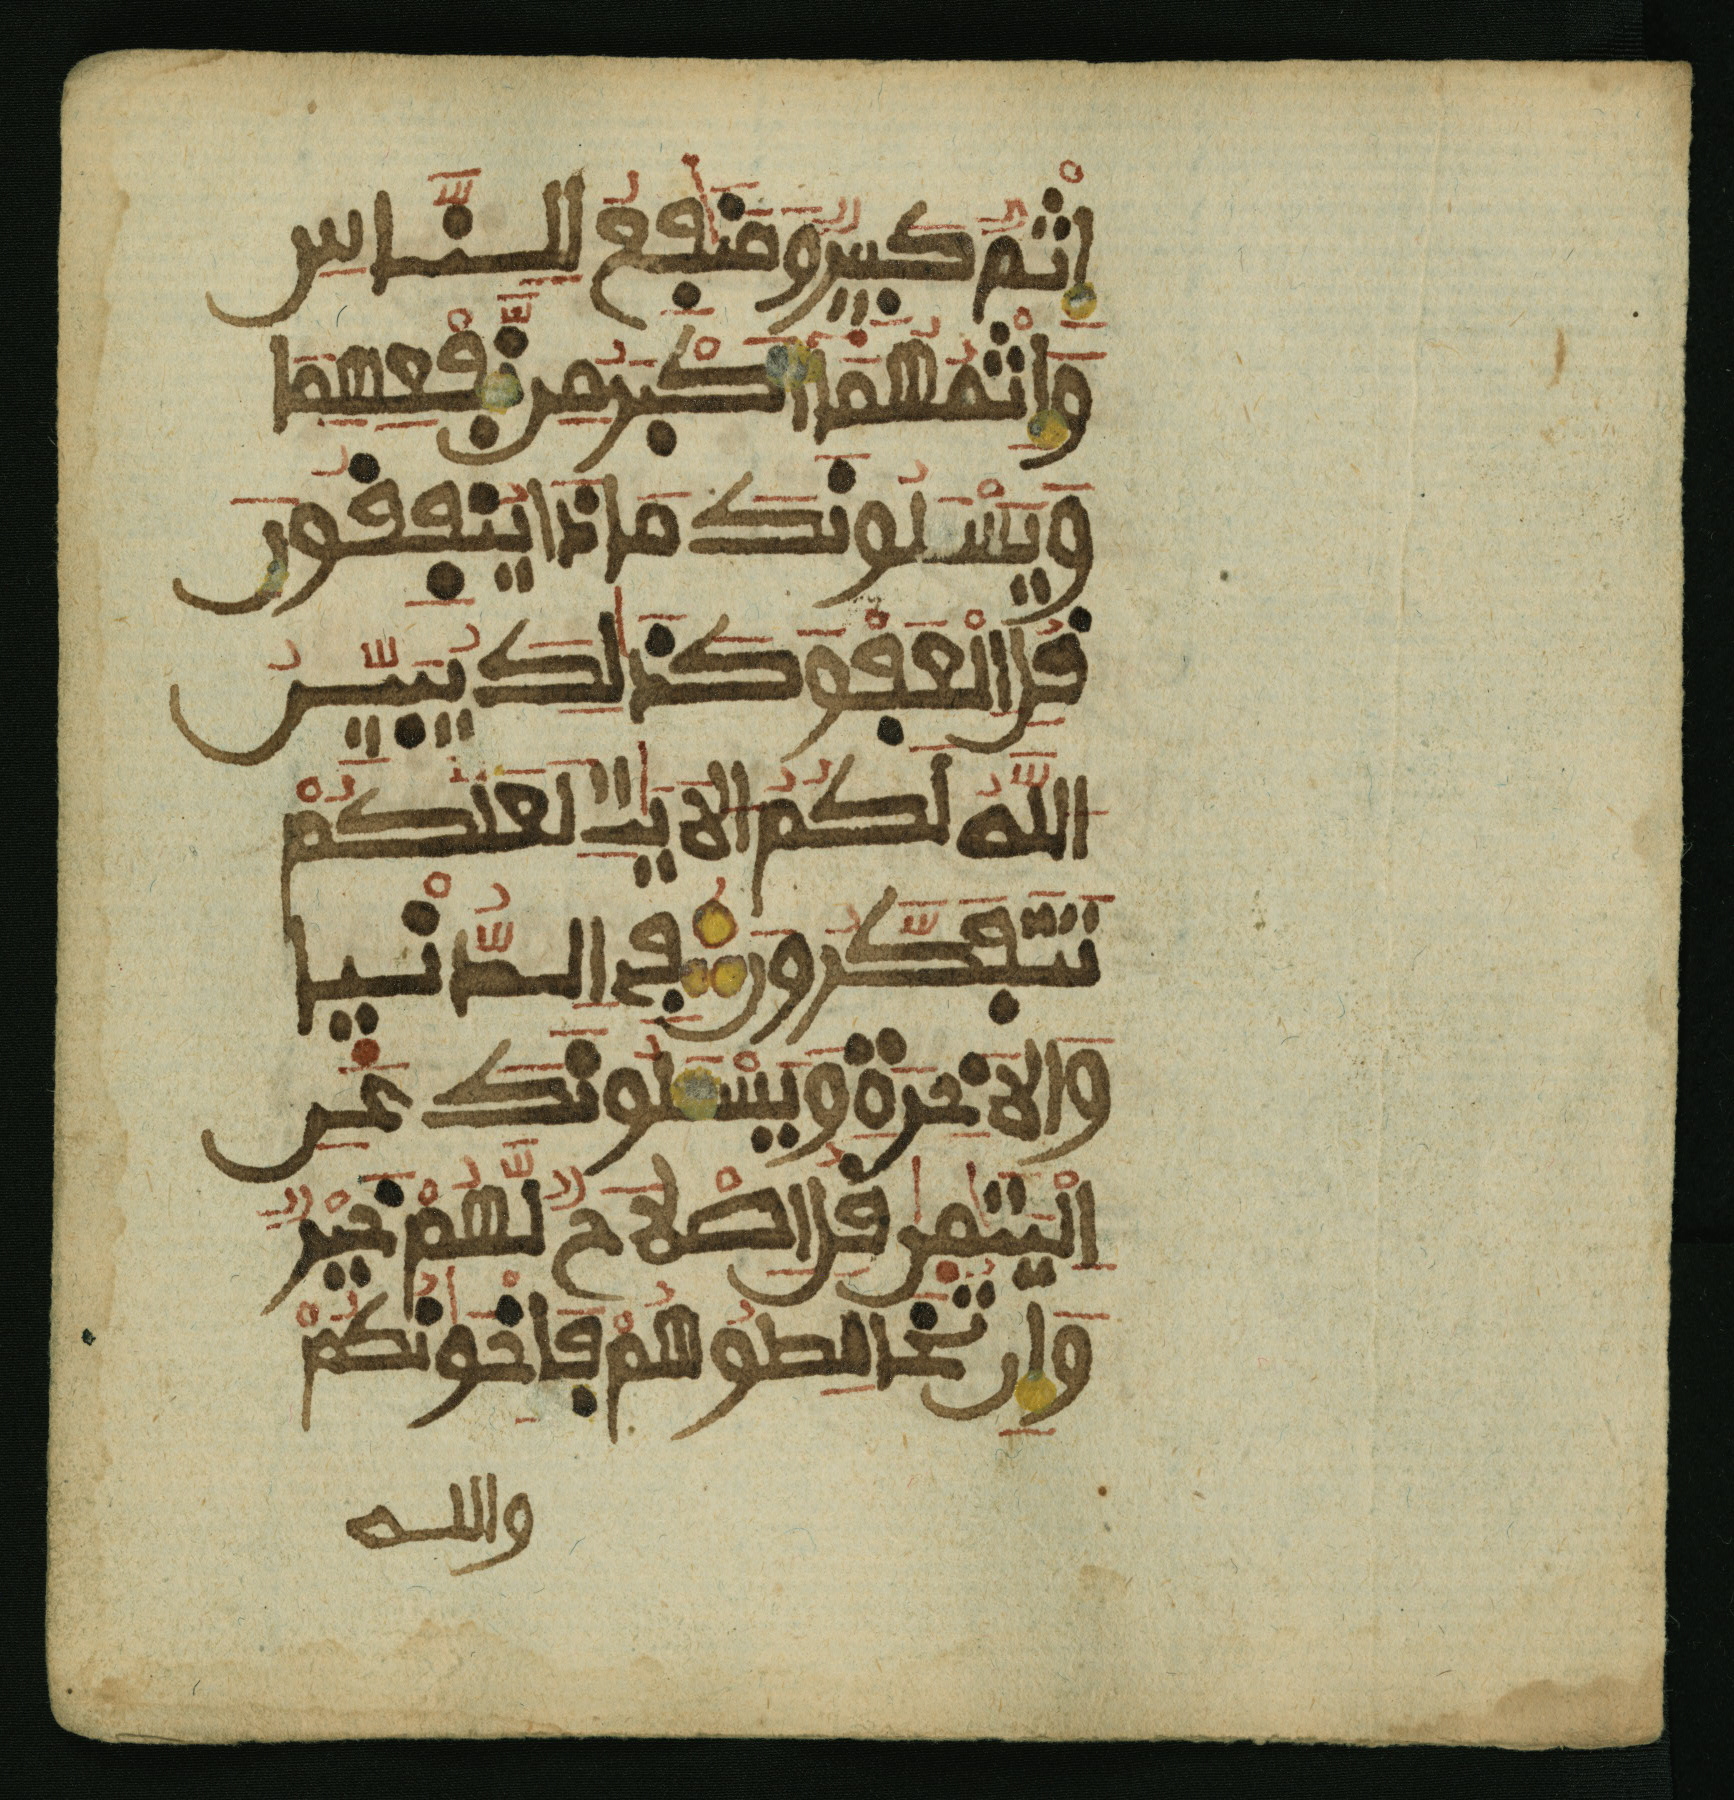 إِثْمٌ كَبِيرٌ وَمَنَٰفِعُ لِلنَّاسِ
وَإِثْمُهُمَا أَكْبَرُ مِن نَّفْعِهِمَا
وَيَسْـَٔلُونَكَ مَاذَا يُنفِقُونَ
قُلِ الْعَفْوَ كَذَٰلِكَ يُبَيِّنُ
اللَّهُ لَكُمُ الْأَيَٰتِ لَعَلَّكُمْ
تَتَفَكَّرُونَ فِي الدُّنْيَا
وَالْأَخِرَةِ وَيَسْـَٔلُونَكَ عَنِ
الْيَتَٰمَىٰ قُلْ إِصْلَاحٌ لَّهُمْ خَيْرٌ
وَإِن تُخَالِطُوهُمْ فَإِخْوَٰنُكُمْ
والله